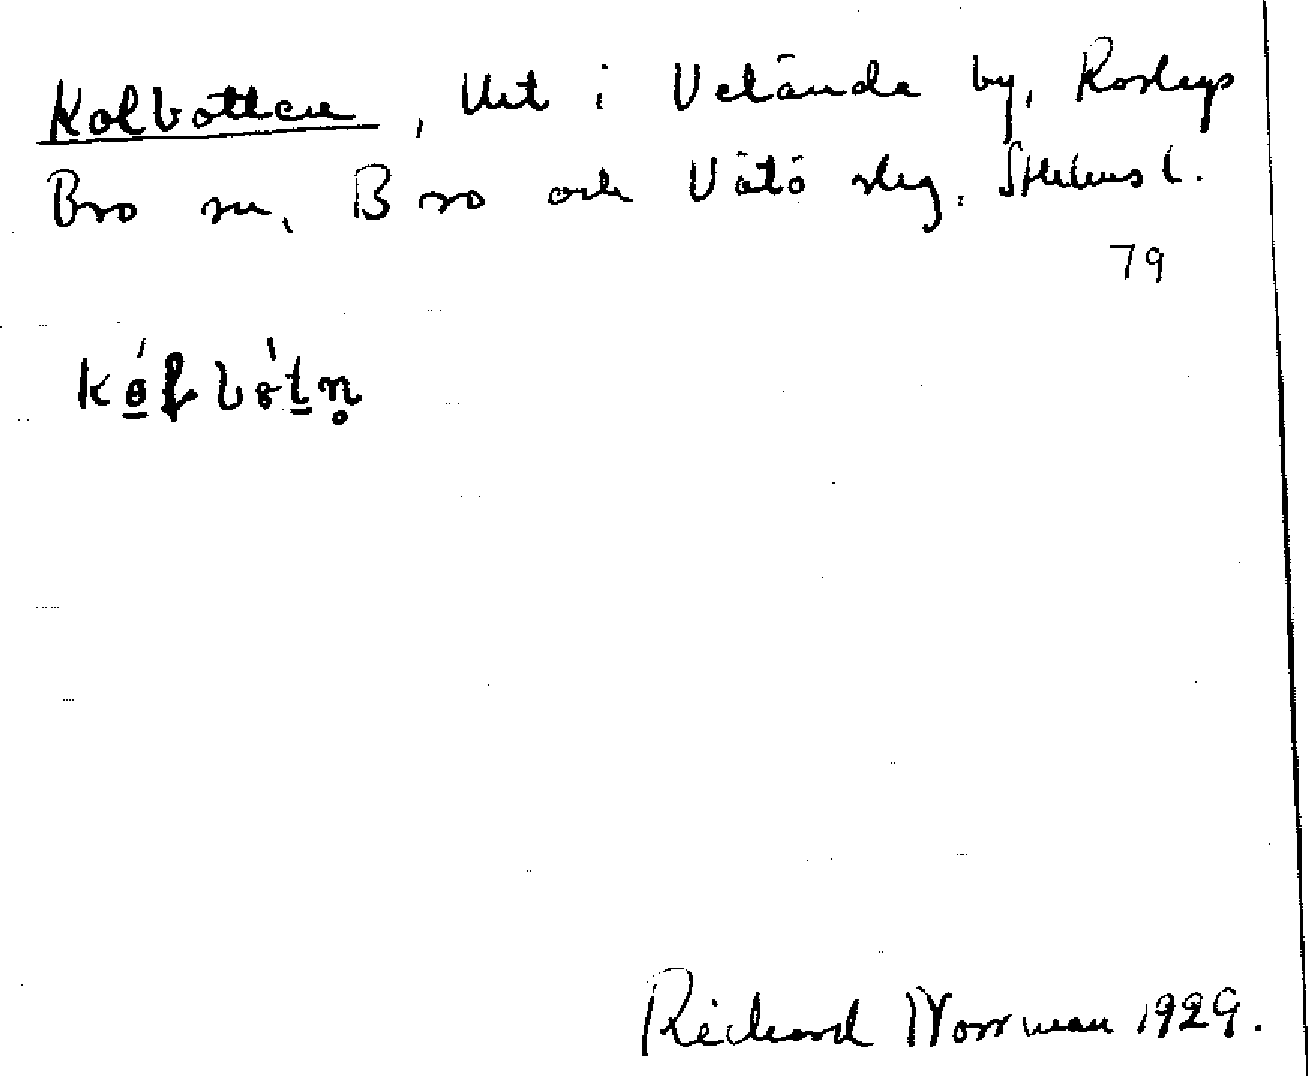 Kolbotten, Urt i Vetända by, Roslags
Bro sn, Bro och Vätö skg. Sthlms l.
79
Richard Norrman 1929.